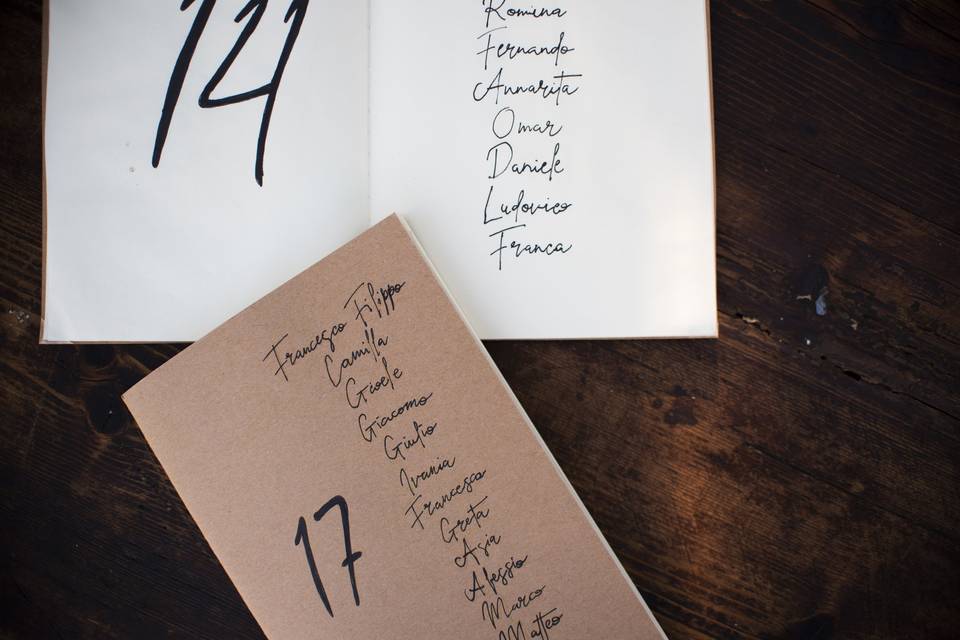 14
Romina
Fernando
Annarita
Omar
Daniele
Ludovico
Franca
Francesco Filippo
Camilla
Gioele
Giacomo
Giulio
Ivania
Francesca
Greta
Asia
Alessio
Marco
Matteo
17